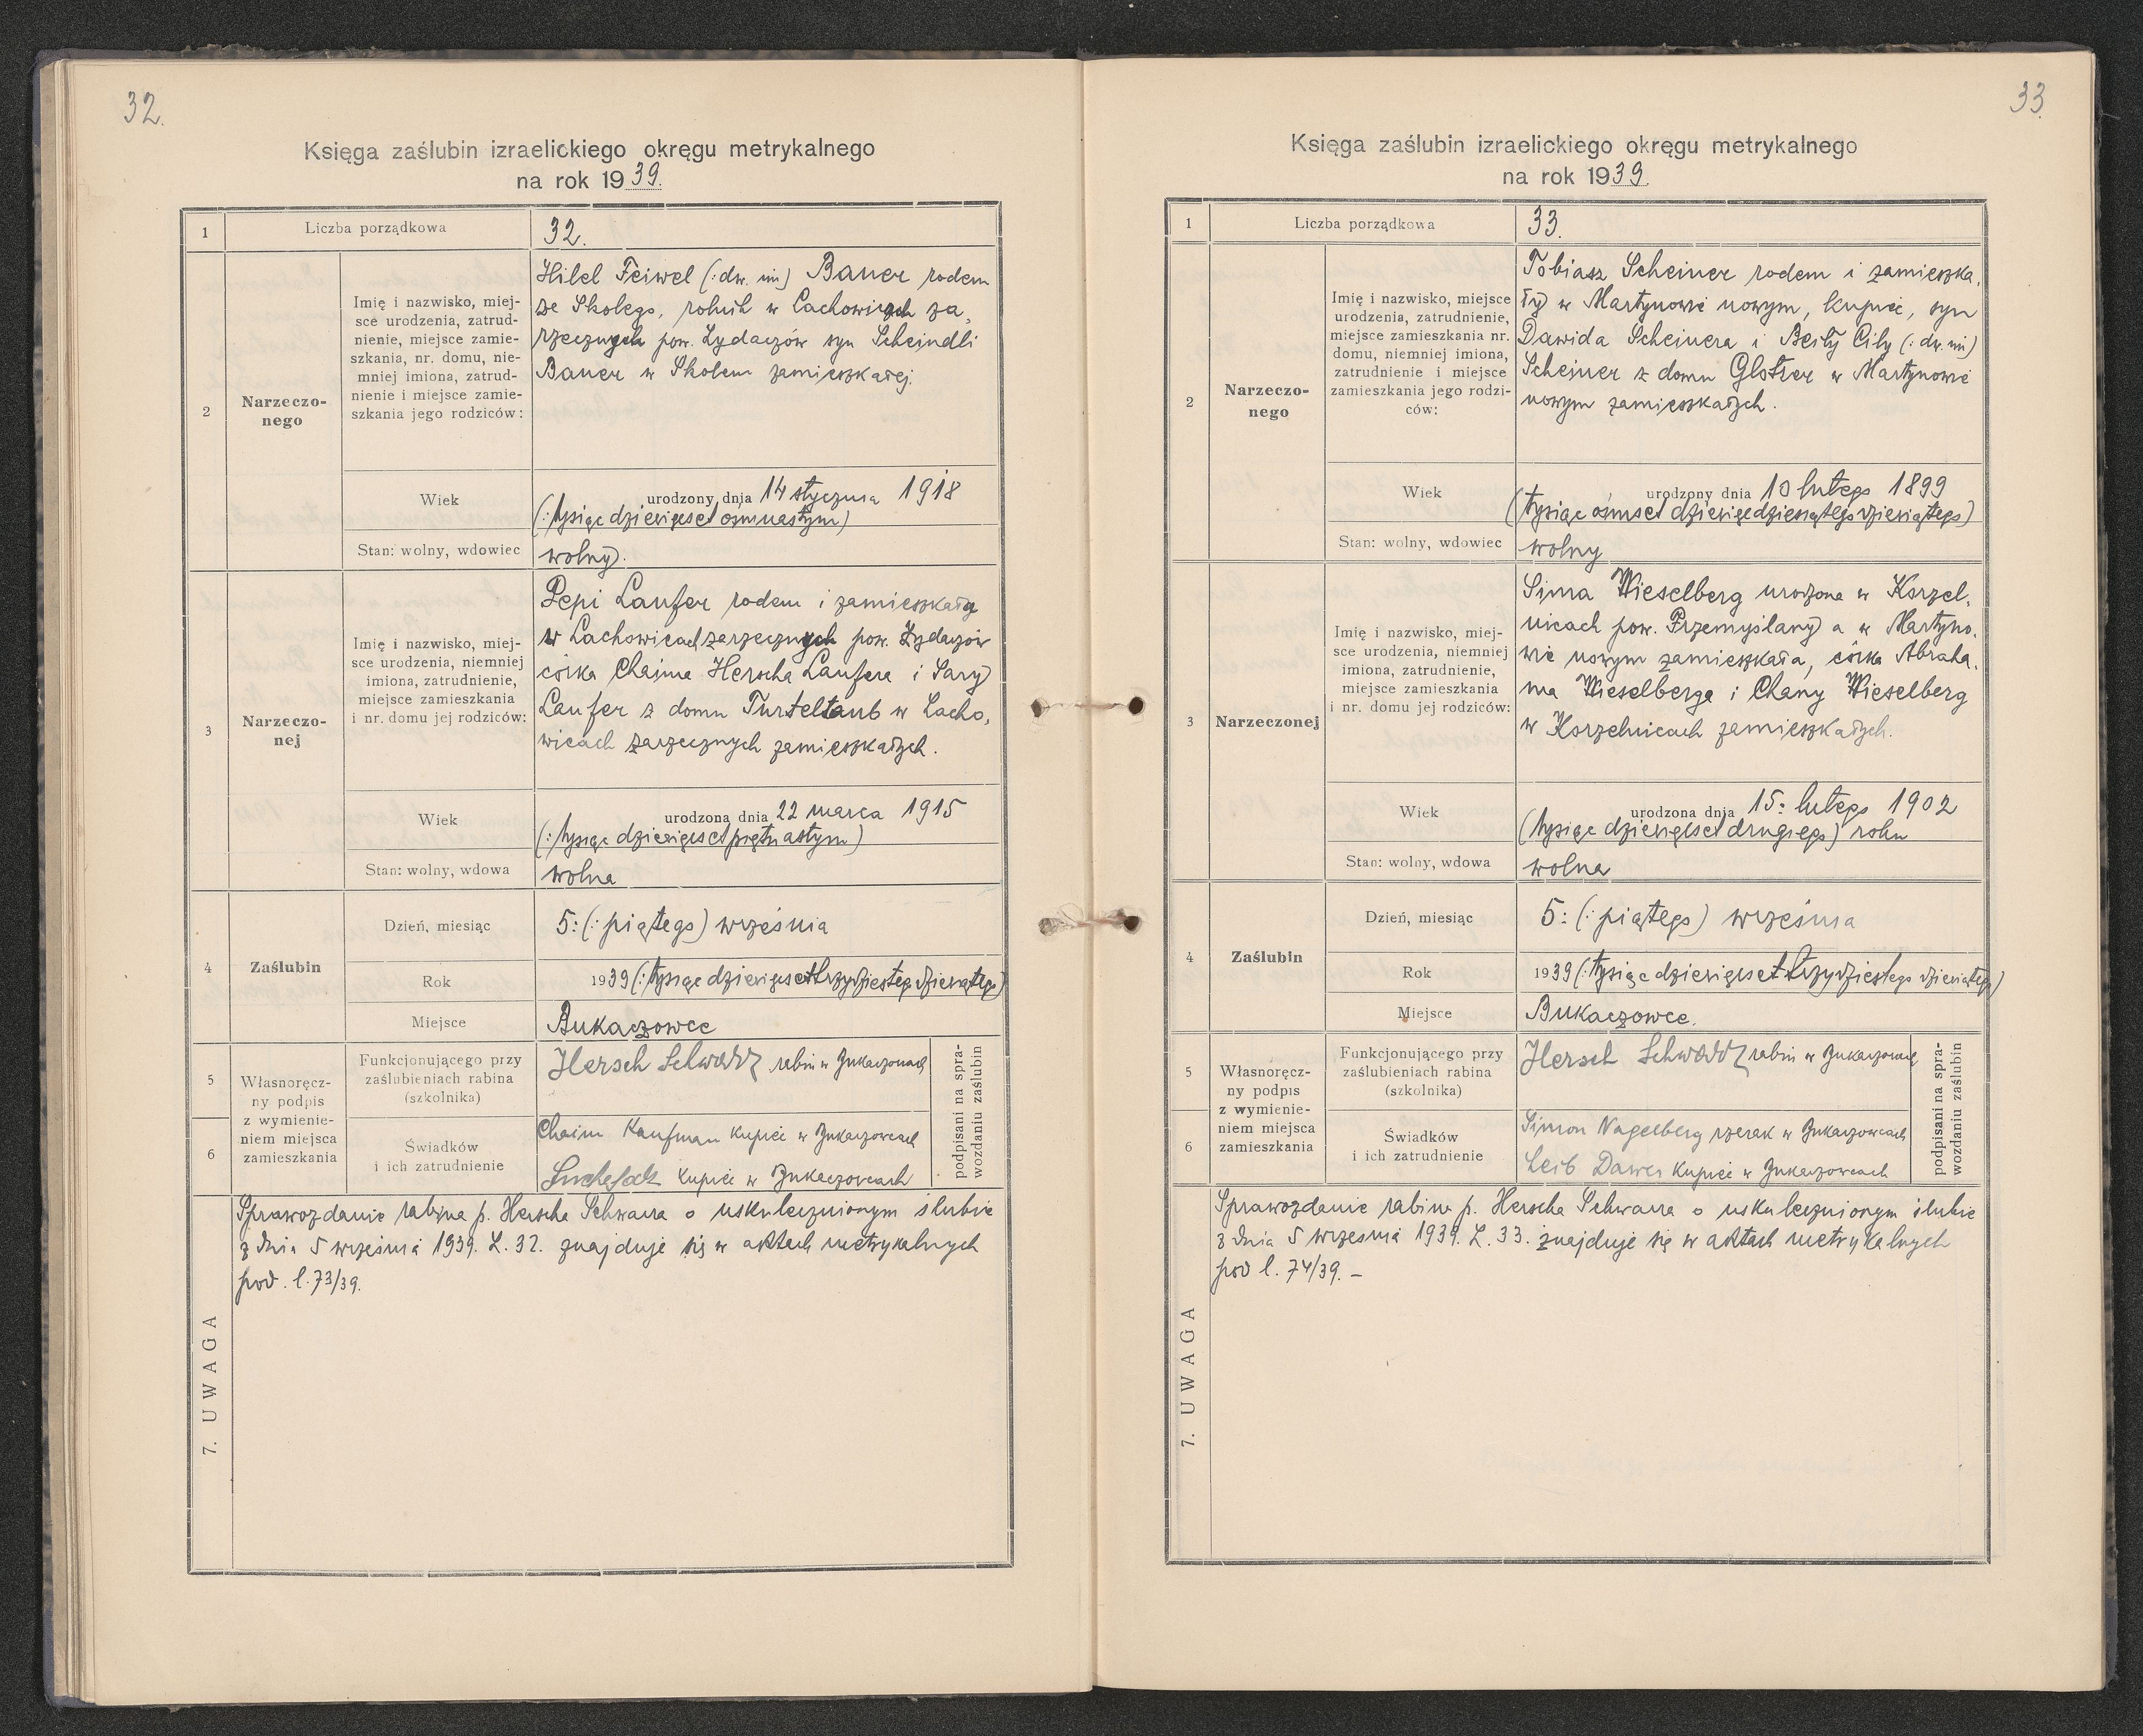 32.
Księga zaślubin izraelickiego okręgu metrykalnego
na rok 1939.
1
Liczba porządkowa
32.
2
Narzeczo-
nego
Imię i nazwisko, miej-
sce urodzenia, zatrud-
nienie, miejsce zamie-
szkania, nr. domu, nie-
mniej imiona, zatrud-
nienie i miejsce zamie-
szkania jego rodziców:
Hilel Feiwel (: dw. im) Bauer rodem
ze Skolego, rolnik w Lachowicach za,
rzecznych pow. Żydaczów syn Scheindli
Bauer w Skolem zamieszkałej.
Wiek
urodzony dnia 14 stycznia 1918
(: tysiąc dziewięćset ośmnastym)
Stan: wolny, wdowiec
wolny.
3
Narzeczo-
nej
Imię i nazwisko, miej-
sce urodzenia, niemniej
imiona, zatrudnienie,
miejsce zamieszkania
i nr. domu jej rodziców:
Pepi Laufer rodem i zamieszkała
w Lachowicach zarzecznych pow. Żydaczów
córka Chaima Herscha Laufera i Sary
Laufer z domu Turteltaub w Lacho,
wicach zarzecznych zamieszkałych.
Wiek
urodzona dnia 22 marca 1915
(: tysiąc dziewięćset piętnastym)
Stan: wolny, wdowa
wolna
4
Zaślubin
Dzień, miesiąc
5: (: piątego) września
Rok
1939 (: tysiąc dziewięćset trzydziestego dziewiątego)
Miejsce
Bukaczowce
5
6
Własnoręcz-
ny podpis
z wymienie-
niem miejsca
zamieszkania
Funkcjonującego przy
zaślubieniach rabina
(szkolnika)
Hersch Schwarz rabin w Bukaczowcach
Świadków
i ich zatrudnienie
Chaim Kaufman kupiec w Bukaczowcach
kupiec w Bukaczowcach
podpisani na spra-
wozdaniu zaślubin
7. UWAGA
Sprawozdanie rabina p. Herscha Schwarza o uskutecznionym ślubie
z dnia 5 września 1939. L. 32. znajduje się w aktach metrykalnych
pod. l. 73/39.
33.
Księga zaślubin izraelickiego okręgu metrykalnego
na rok 1939.
1
Liczba porządkowa
33.
2
Narzeczo-
nego
Imię i nazwisko, miejsce
urodzenia, zatrudnienie,
miejsce zamieszkania nr.
domu, niemniej imiona,
zatrudnienie i miejsce
zamieszkania jego rodzi-
ców:
Tobiasz Scheiner rodem i zamieszka,
ły w Martynowie nowym, kupiec, syn
Dawida Scheinera i Beily Cily (: dw. im)
Scheiner z domu Glotzer w Martynowie
nowym zamieszkałych.
Wiek
urodzony dnia 10 lutego 1899
(tysiąc ośmset dziewięćdziesiątego dziewiątego)
Stan: wolny, wdowiec
wolny
3
Narzeczonej
Imię i nazwisko, miej-
sce urodzenia, niemniej
imiona, zatrudnienie,
miejsce zamieszkania
i nr. domu jej rodziców:
Sima Wieselberg urodzona w Korzel,
nicach pow. Przemyślany a w Martyno,
wie nowym zamieszkała, córka Abraha,
ma Wieselberga i Chany Wieselberg
w Korzelnicach zamieszkałych.
Wiek
urodzona dnia 15: lutego 1902
(tysiąc dziewięćset drugiego) roku
Stan: wolny, wdowa
wolna
4
Zaślubin
Dzień, miesiąc
5: (: piątego) września
Rok
1939 (: tysiąc dziewięćset trzydziestego dziewiątego)
Miejsce
Bukaczowce.
5
6
Własnoręcz-
ny podpis
z wymienie-
niem miejsca
zamieszkania
Funkcjonującego przy
zaślubieniach rabina
(szkolnika)
Hersch Schwarz rabin w Bukaczowcach
Świadków
i ich zatrudnienie
Simon Nagelberg rzezak w Bukaczowcach
Leib Dawer kupiec w Bukaczowcach
podpisani na spra-
wozdaniu zaślubin
7. UWAGA
Sprawozdanie rabina p. Herscha Schwarza o uskutecznionym ślubie
z dnia 5 września 1939. L. 33. znajduje się w aktach metrykalnych
pod l. 74/39. –